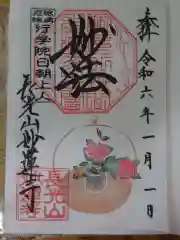 奉拝
令和六年一月一日
妙法
行学院日朝上人
長光山妙蓮寺
長光山